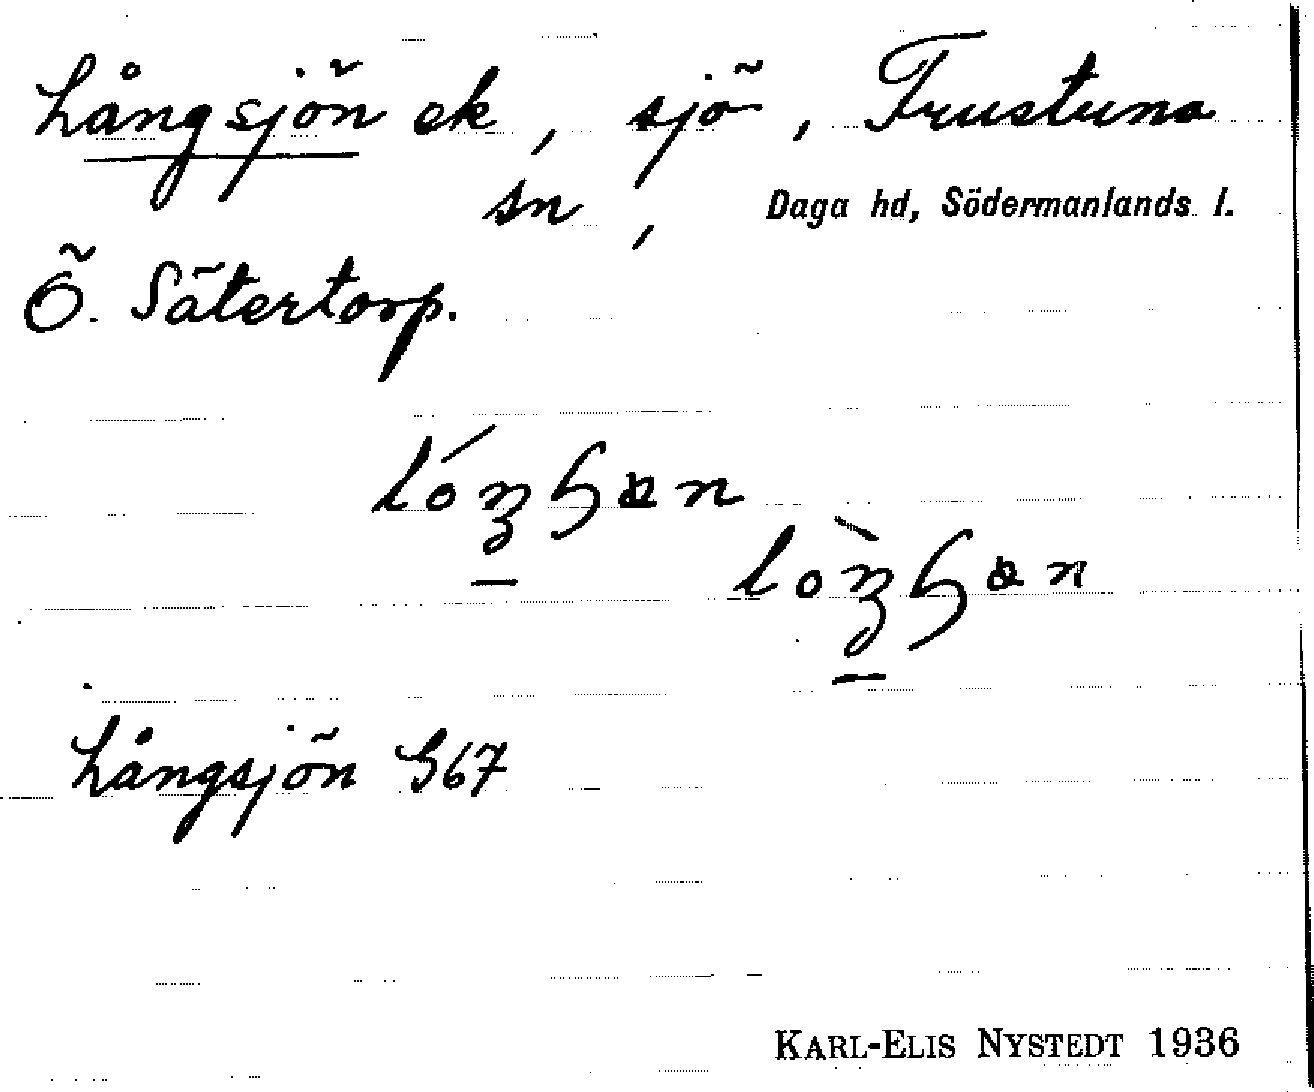 Långsjön ek, sjö, Frustuna
sn, Daga hd, Södermanlands l.
Ö. Sätertorp.
Långsjön G67
KARL-ELIS NYSTEDT 1936